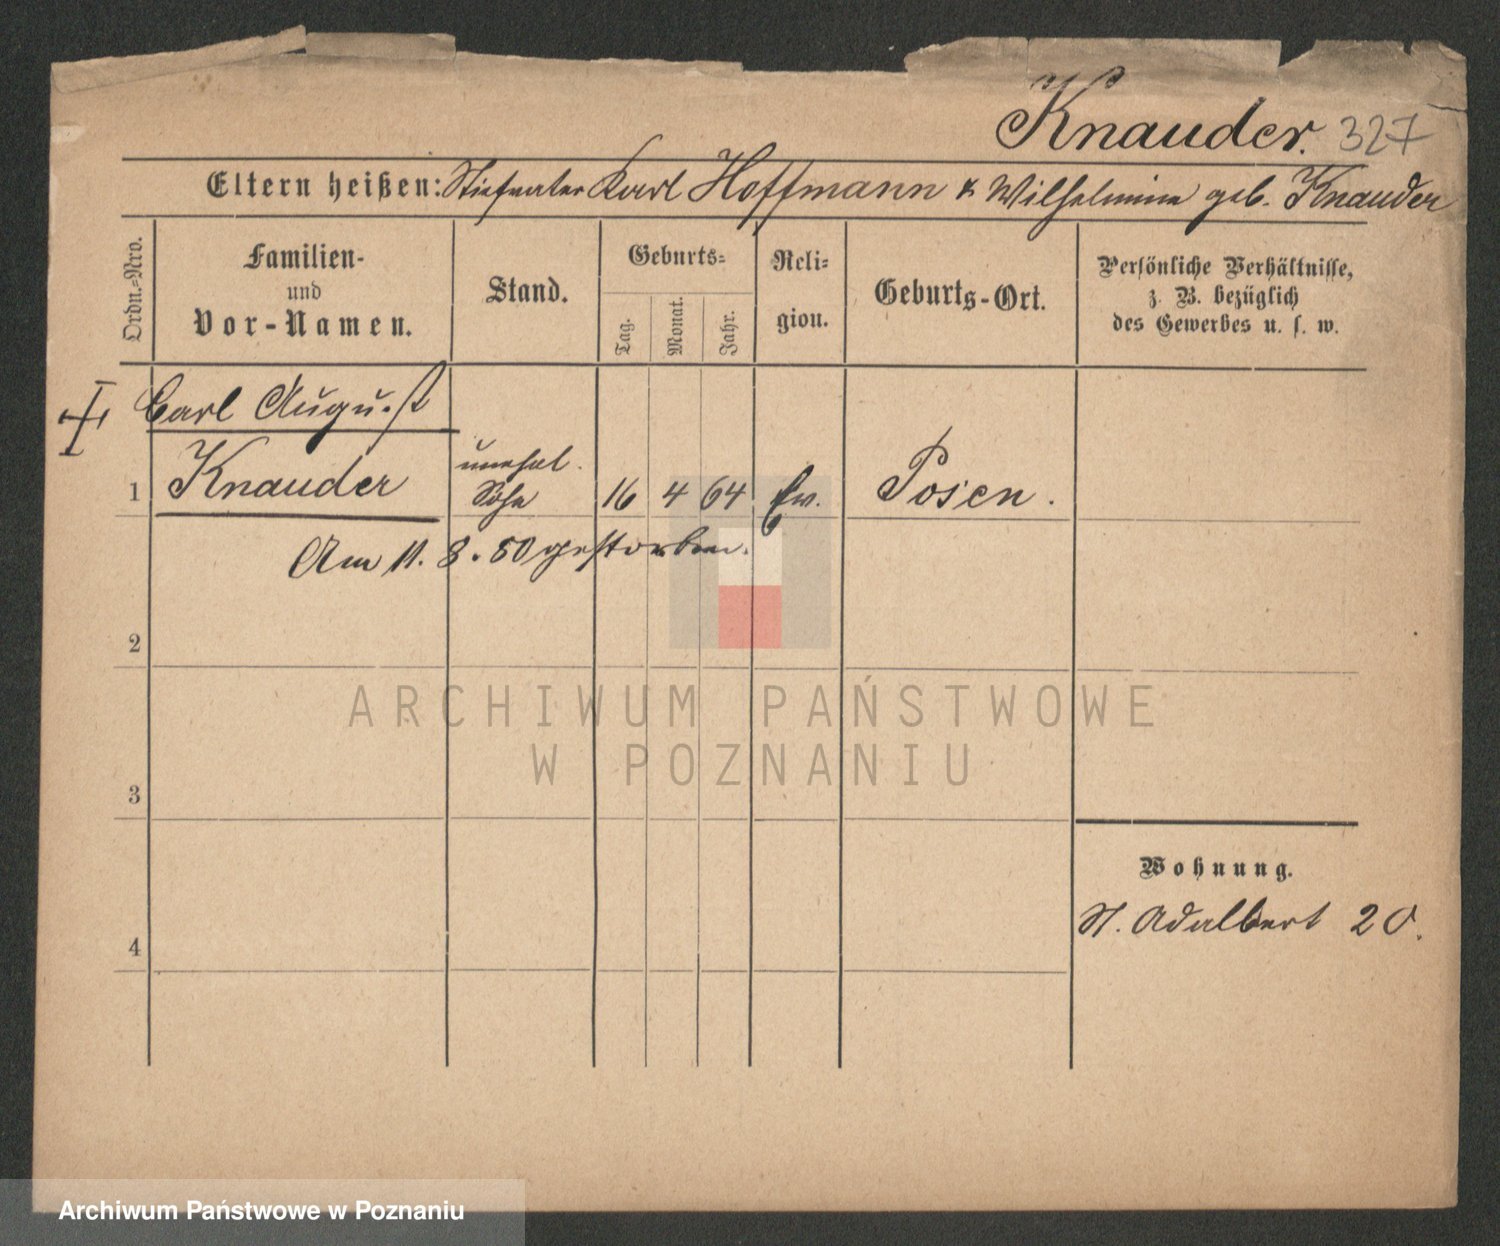 Knauder. 327
Eltern heißen: Stiefvater Karl Hoffmann & Wilhelmine geb. Knauder
Ordn.-Nro.
Familien-
und
Vor-Namen.
Stand.
Geburts-
Tag.
Monat.
Jahr.
Reli-
gion.
Geburts-Ort.
Persönliche Verhältnisse,
z. B. bezüglich
des Gewerbes u. s. w.
Carl August
1 Knauder unehel. Sohn 16 4 64 Ev. Posen.
Am 11. 8. 80 gestorben.
2
3
4
Wohnung.
St. Adalbert 20.
ARCHIWUM PAŃSTWOWE
W POZNANIU
Archiwum Państwowe w Poznaniu